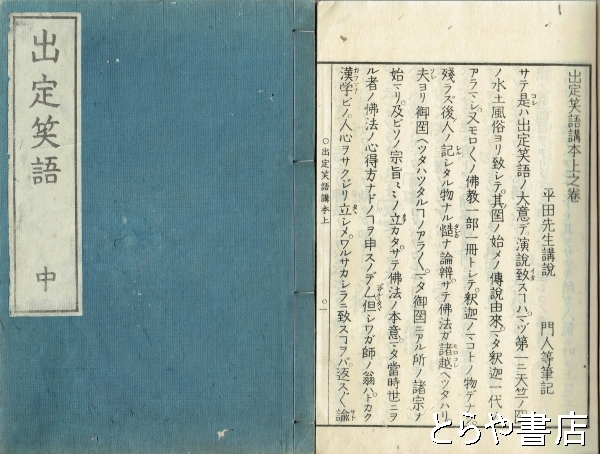 出定笑語
中
出定笑語講本上之卷
平田先生講說 門人等筆記
サテ是ハ出定笑語ノ大意デ演說致スコハマヅ第一ニ天竺ノ国
ノ水土風俗ヨリ致シテ其国ノ始メノ傳說由來マタ釋迦一代
アラマシ又モロ〱ノ佛教一部一冊トシテ釋迦ノマコトノ物デナク
殘ラズ後人ノ記シタル物ナル慥ナ論辨サテ佛法ガ諸越ヘツタハリ
夫ヨリ御国ヘツタハツタルコノアラ〱マタ御国ニアル所ノ諸宗ノ
始マリ及ビソノ宗旨〻〻ノ立カタサテ佛法ノ本意マタ當時世ニヲ
ル者ノ佛法ノ心得方ナドノコヲ申スノデ但シワガ師ノ翁ハトカク
漢学ビノ人心ヲサクジリ立メワルサカシラニ致スコヲバ返ス〲諭
○出定笑語講本上
○一
とらや書店